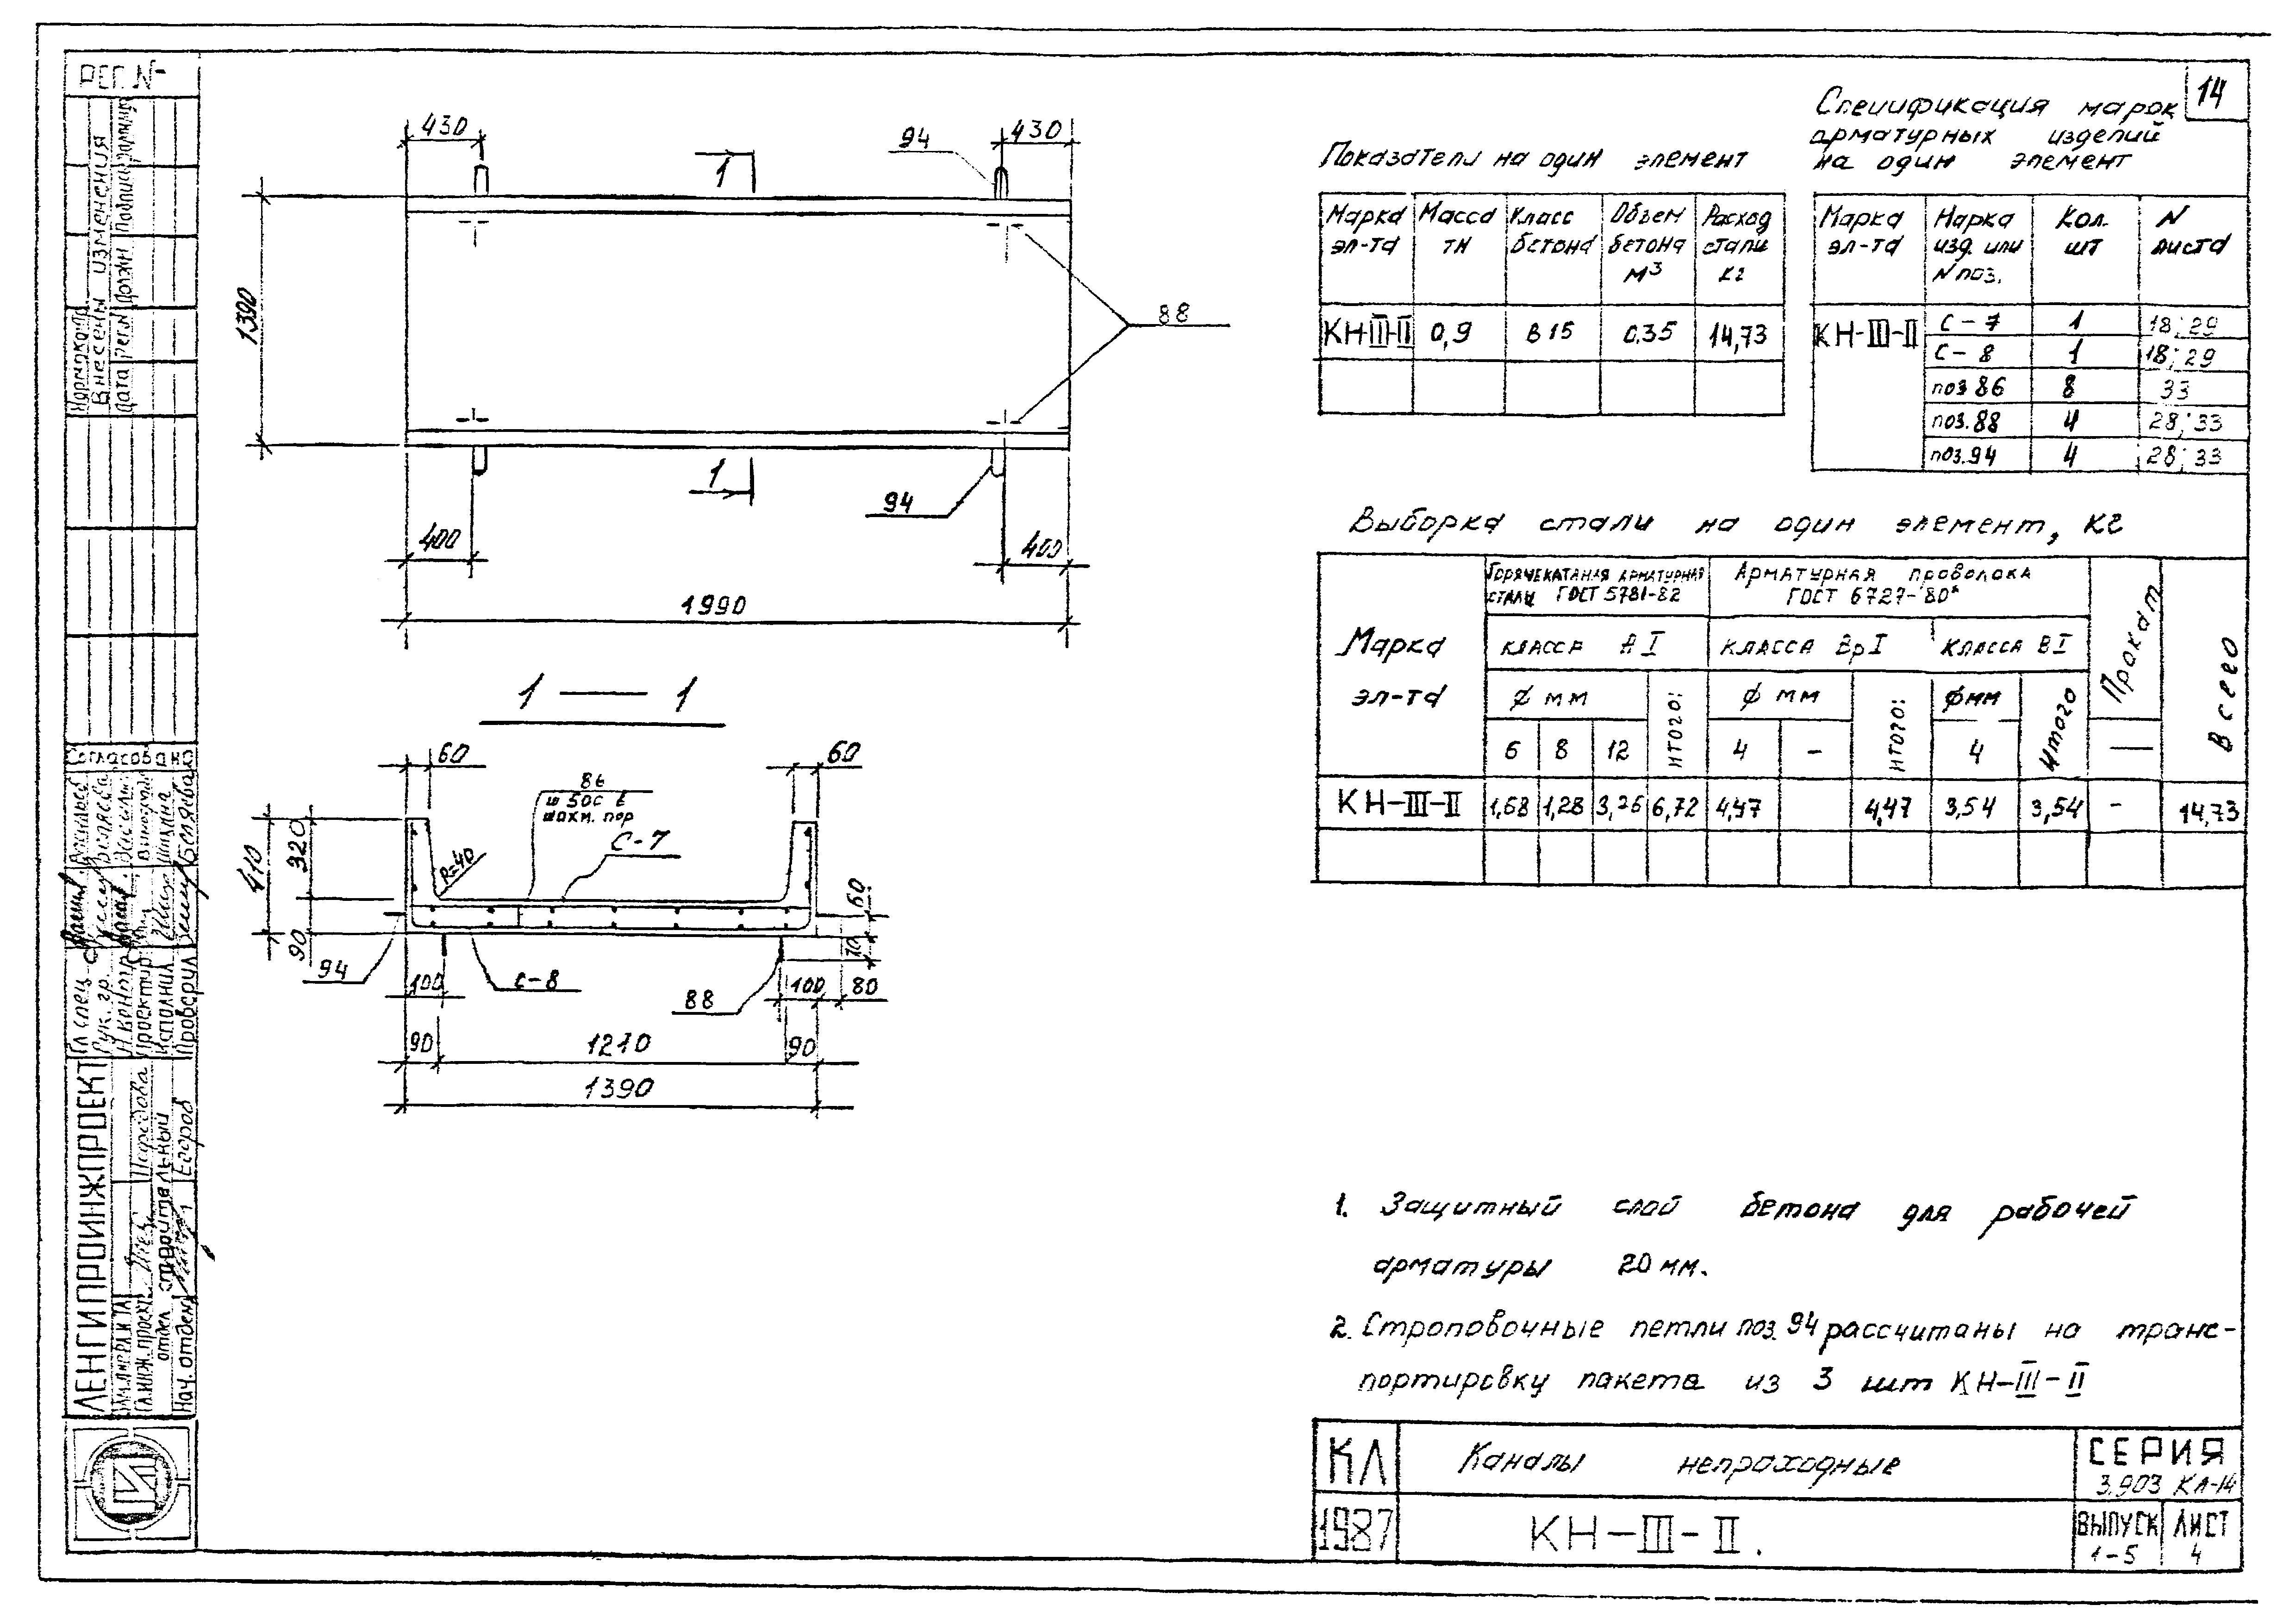 14
РЕГ. N-
Внесены изменения
Дата
Рег.N
Должн
430
94
430
1
1390
88
1
94
400
400
1990
1 — 1
60
60
86
ш 500 в
шахм. пор
С-7
R=40
410
320
90
60
70
94
100
С-8
88
100
80
90
1210
90
1390
Показатели на один элемент
Марка эл-та
Масса тн
Класс бетона
Объем бетона м3
Расход стали кг
КН-III-II
0,9
В 15
0.35
14,73
Спецификация марок
арматурных изделий
на один элемент
Марка эл-та
Марка изд. или N поз.
Кол. шт
N листа
КН-III-II
С-7 1 18; 29
С-8 1 18; 29
поз 86 8 33
поз.88 4 28; 33
поз.94 4 28; 33
Выборка стали на один элемент, кг
Марка эл-та
Горячекатаная арматурная
сталь ГОСТ 5781-82
Арматурная проволока
ГОСТ 6727-80*
Прокат
Всего
класса А I
класса Вр I
класса В I
ф мм
итого:
ф мм
итого:
ф мм
Итого
6 8 12 4 - 4 —
КН-III-II 1,68 1,28 3,76 6,72 4,47 4,47 3,54 3,54 - 14,73
1. Защитный слой бетона для рабочей
арматуры 20 мм.
2. Строповочные петли поз. 94 рассчитаны на транс-
портировку пакета из 3 шт КН-III-II
КЛ
Каналы непроходные
СЕРИЯ
3.903 КЛ-14
1987
КН-III-II.
ВЫПУСК
1-5
ЛИСТ
4
Согласовано
Гл. спец
Рук. гр.
Н. контр
Проектир
Исполнил
Проверил
ЛЕНГИПРОИНЖПРОЕКТ
Гл.инж.проект
отдел строительный
Нач. отдела
Егоров